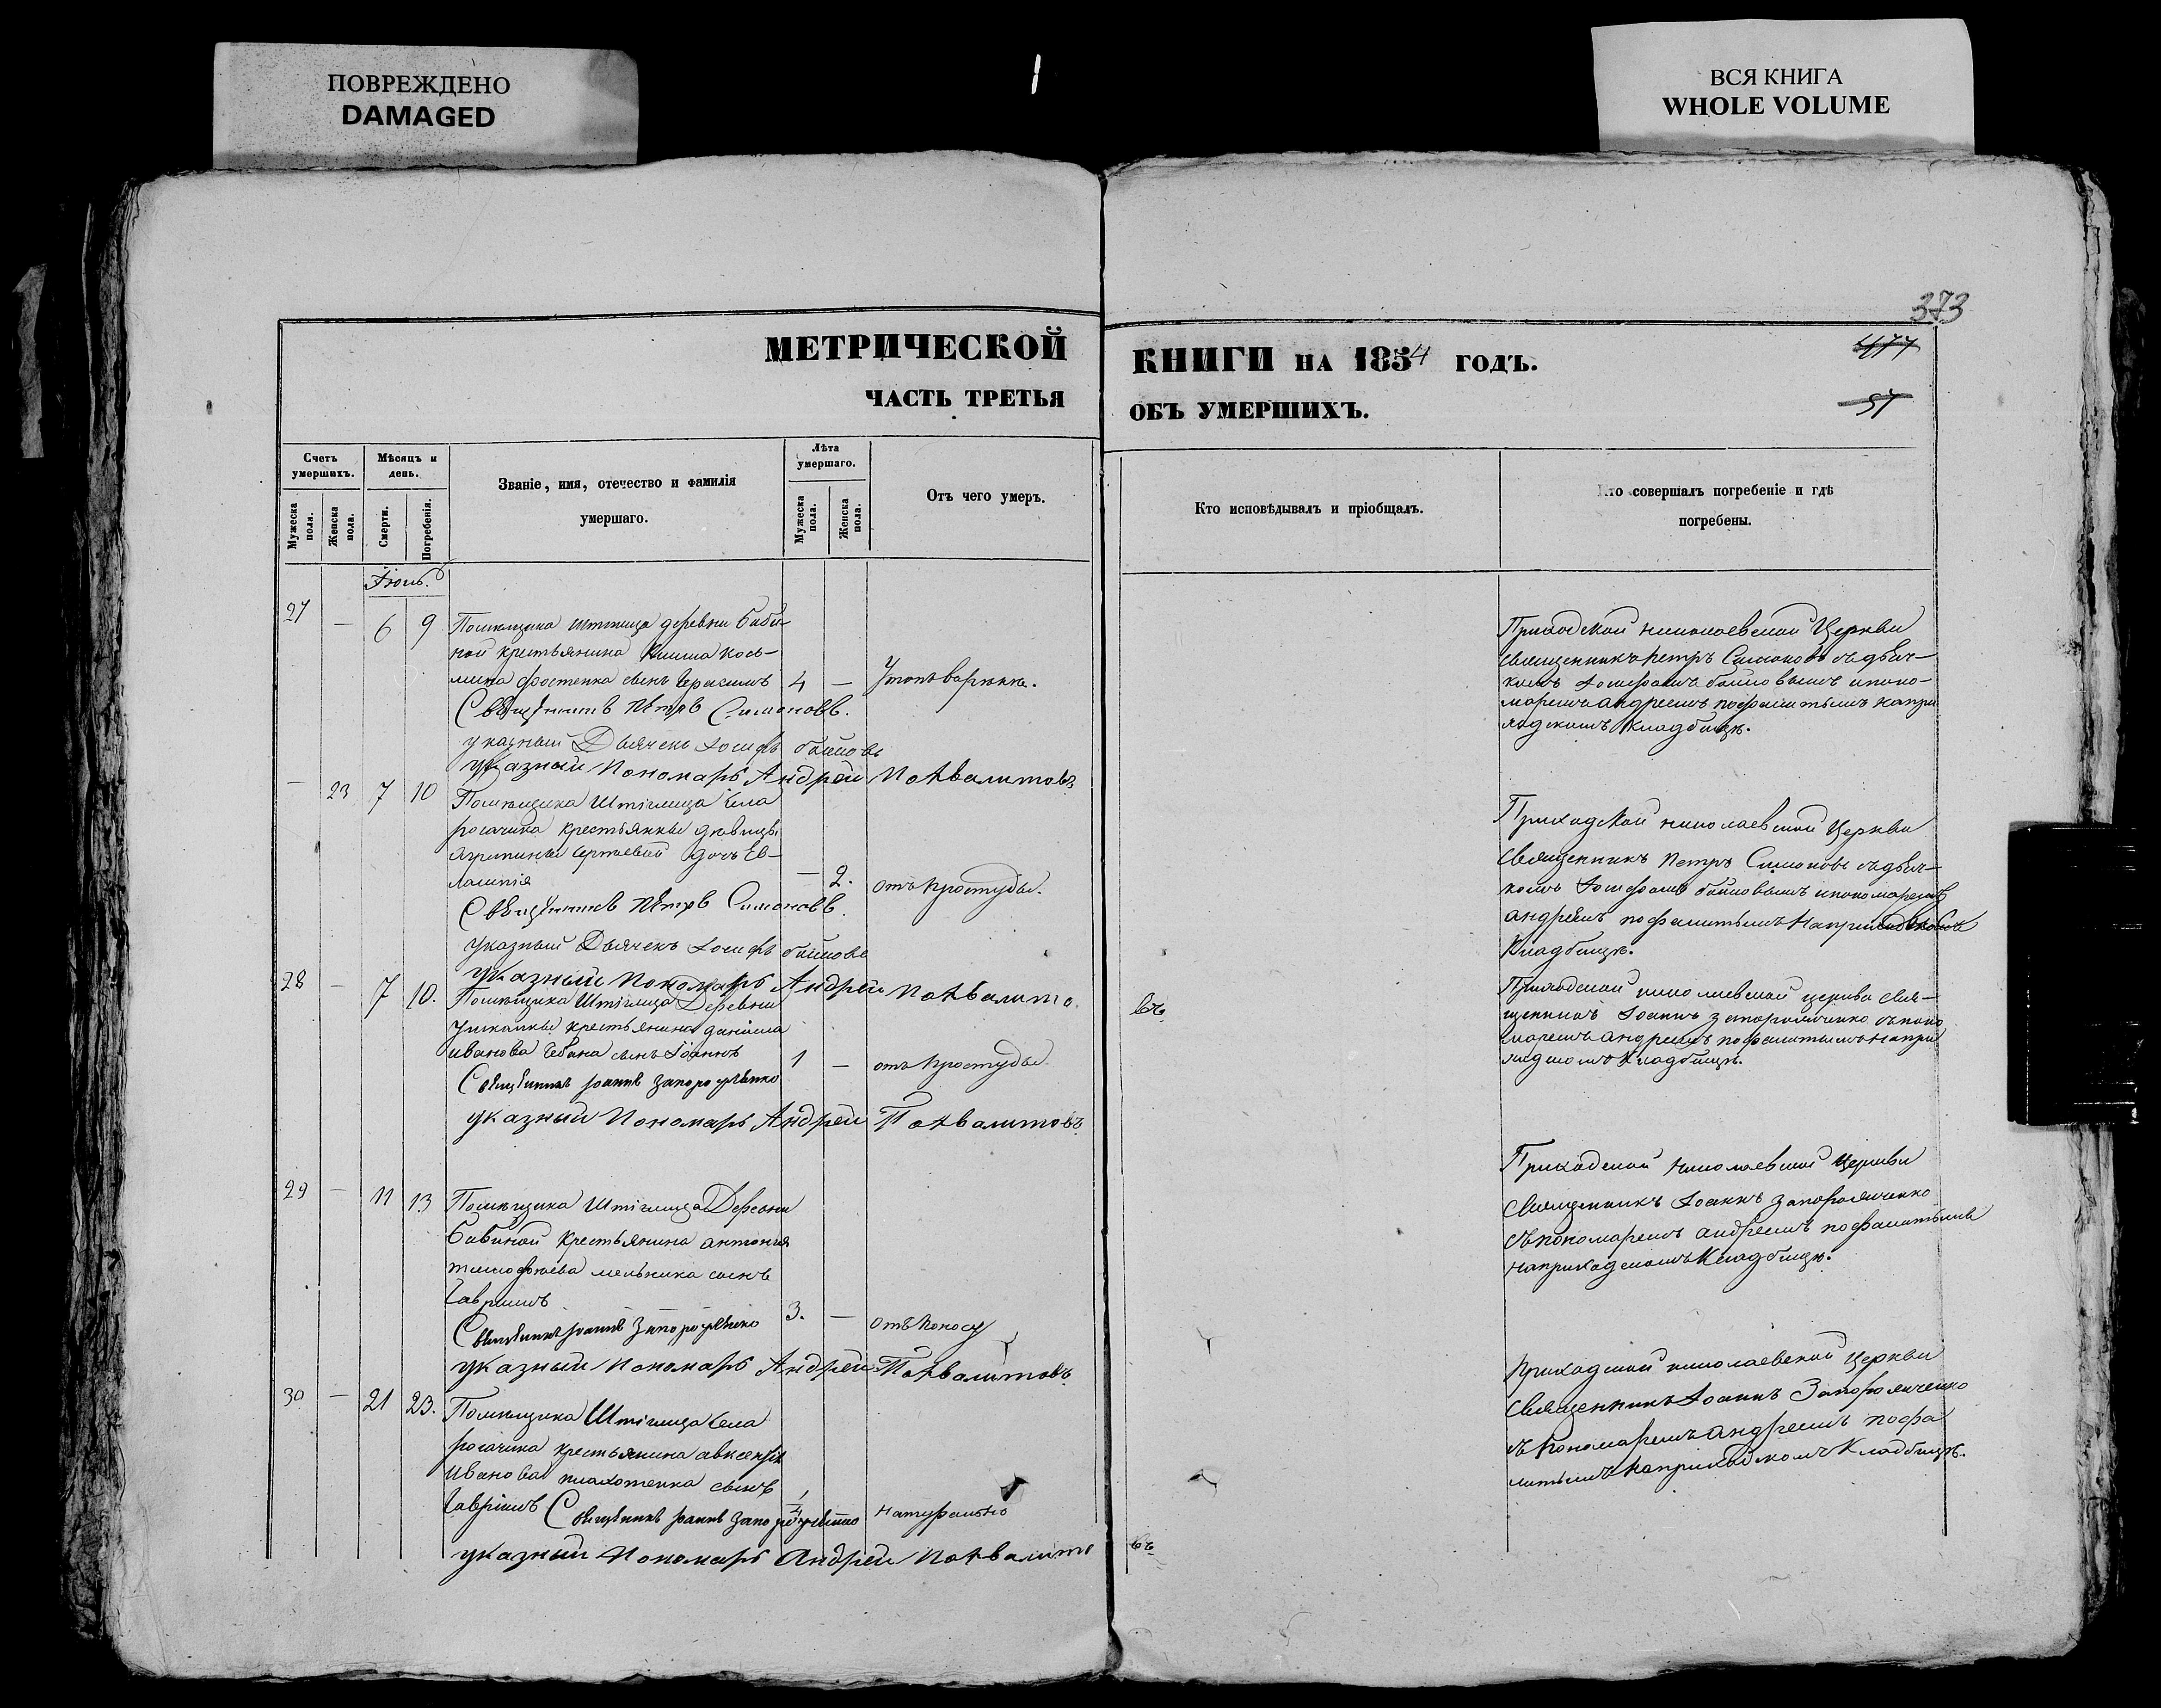 ПОВРЕЖДЕНО
DAMAGED
ВСЯ КНИГА
WHOLE VOLUME
373
МЕТРИЧЕСКОЙ
КНИГИ НА 1854 ГОДЪ.
ЧАСТЬ ТРЕТЬЯ
ОБЪ УМЕРШИХЪ.
57
Счетъ умершихъ.
Мужеска поли.
Женска пола.
Мѣсяцъ и день.
Смерти.
Погребенія.
Званіе, имя, отечество и фамилія
умершаго.
Лѣта умершаго.
Мужеска пола.
Женска пола.
Отъ чего умеръ.
Кто исповѣдывалъ и пріобщалъ.
Кто совершалъ погребеніе и гдѣ
погребены.
27 — 6 9
Помѣщика Штиглица деревни Баби-
ной крестьянина Кось-
мина сынъ Герасимъ 4 —
Священникъ Петръ Симоновъ.
указный Дьячекъ Іосифъ
указный Пономарь Андрей Похвалитовъ
Приходской николаевской Церкви
священникъ петръ Симоновъ съ дьяч-
комъ Іосифомъ и поно-
маремъ андреемъ похвалитымъ на при
ходскомъ кладбищѣ.
— 23 7 10
Помѣщика Штиглица села
рогачика крестьянки дѣвицы
Агрипины Сергіевой дочь Ев-
лампія — 2. отъ простуды.
Священникъ Петръ Симоновъ.
указный Дьячекъ Іосифъ
указный Пономарь Андрей Похвалито
въ.
Приходской николаевской Церкви
священникъ петръ Симоновъ съ дьяч-
комъ Іосифомъ и пономаремъ
андреемъ на приходскомъ
кладбищѣ.
28 — 7 10.
Помѣщика Штиглица Деревни
крестьянина даніила
иванова Чебана сынъ Іоаннъ 1 — отъ простуды.
Священникъ Іоаннъ Запорожченко
указный Пономарь Андрей Похвалитовъ.
Приходской николаевской церкви свя-
щенникъ Іоаннъ запорожченко съ поно
маремъ андреемъ на при
ходскомъ кладбищѣ.
29 — 11 13
Помѣщика Штиглица Деревни
Бабиной крестьянина антонія
тимофѣева мельника сынъ
Гавріилъ 3. — отъ поносу
Священникъ Іоаннъ Запорожченко
указный Пономарь Андрей Похвалитовъ.
Приходской николаевской Церкви
священникъ Іоаннъ Запорожченко
съ пономаремъ андреемъ
на приходскомъ кладбищѣ.
30 — 21 23.
Помѣщика Штиглица села
рогачика крестьянина авксентія
Иванова сынъ
Гавріилъ Священникъ Іоаннъ Запорожченко натурально
указный Пономарь Андрей Похвалито
въ.
Приходской николаевской Церкви
священникъ Іоаннъ Запорожченко
съ пономаремъ андреемъ
на приходскомъ кладбищѣ.